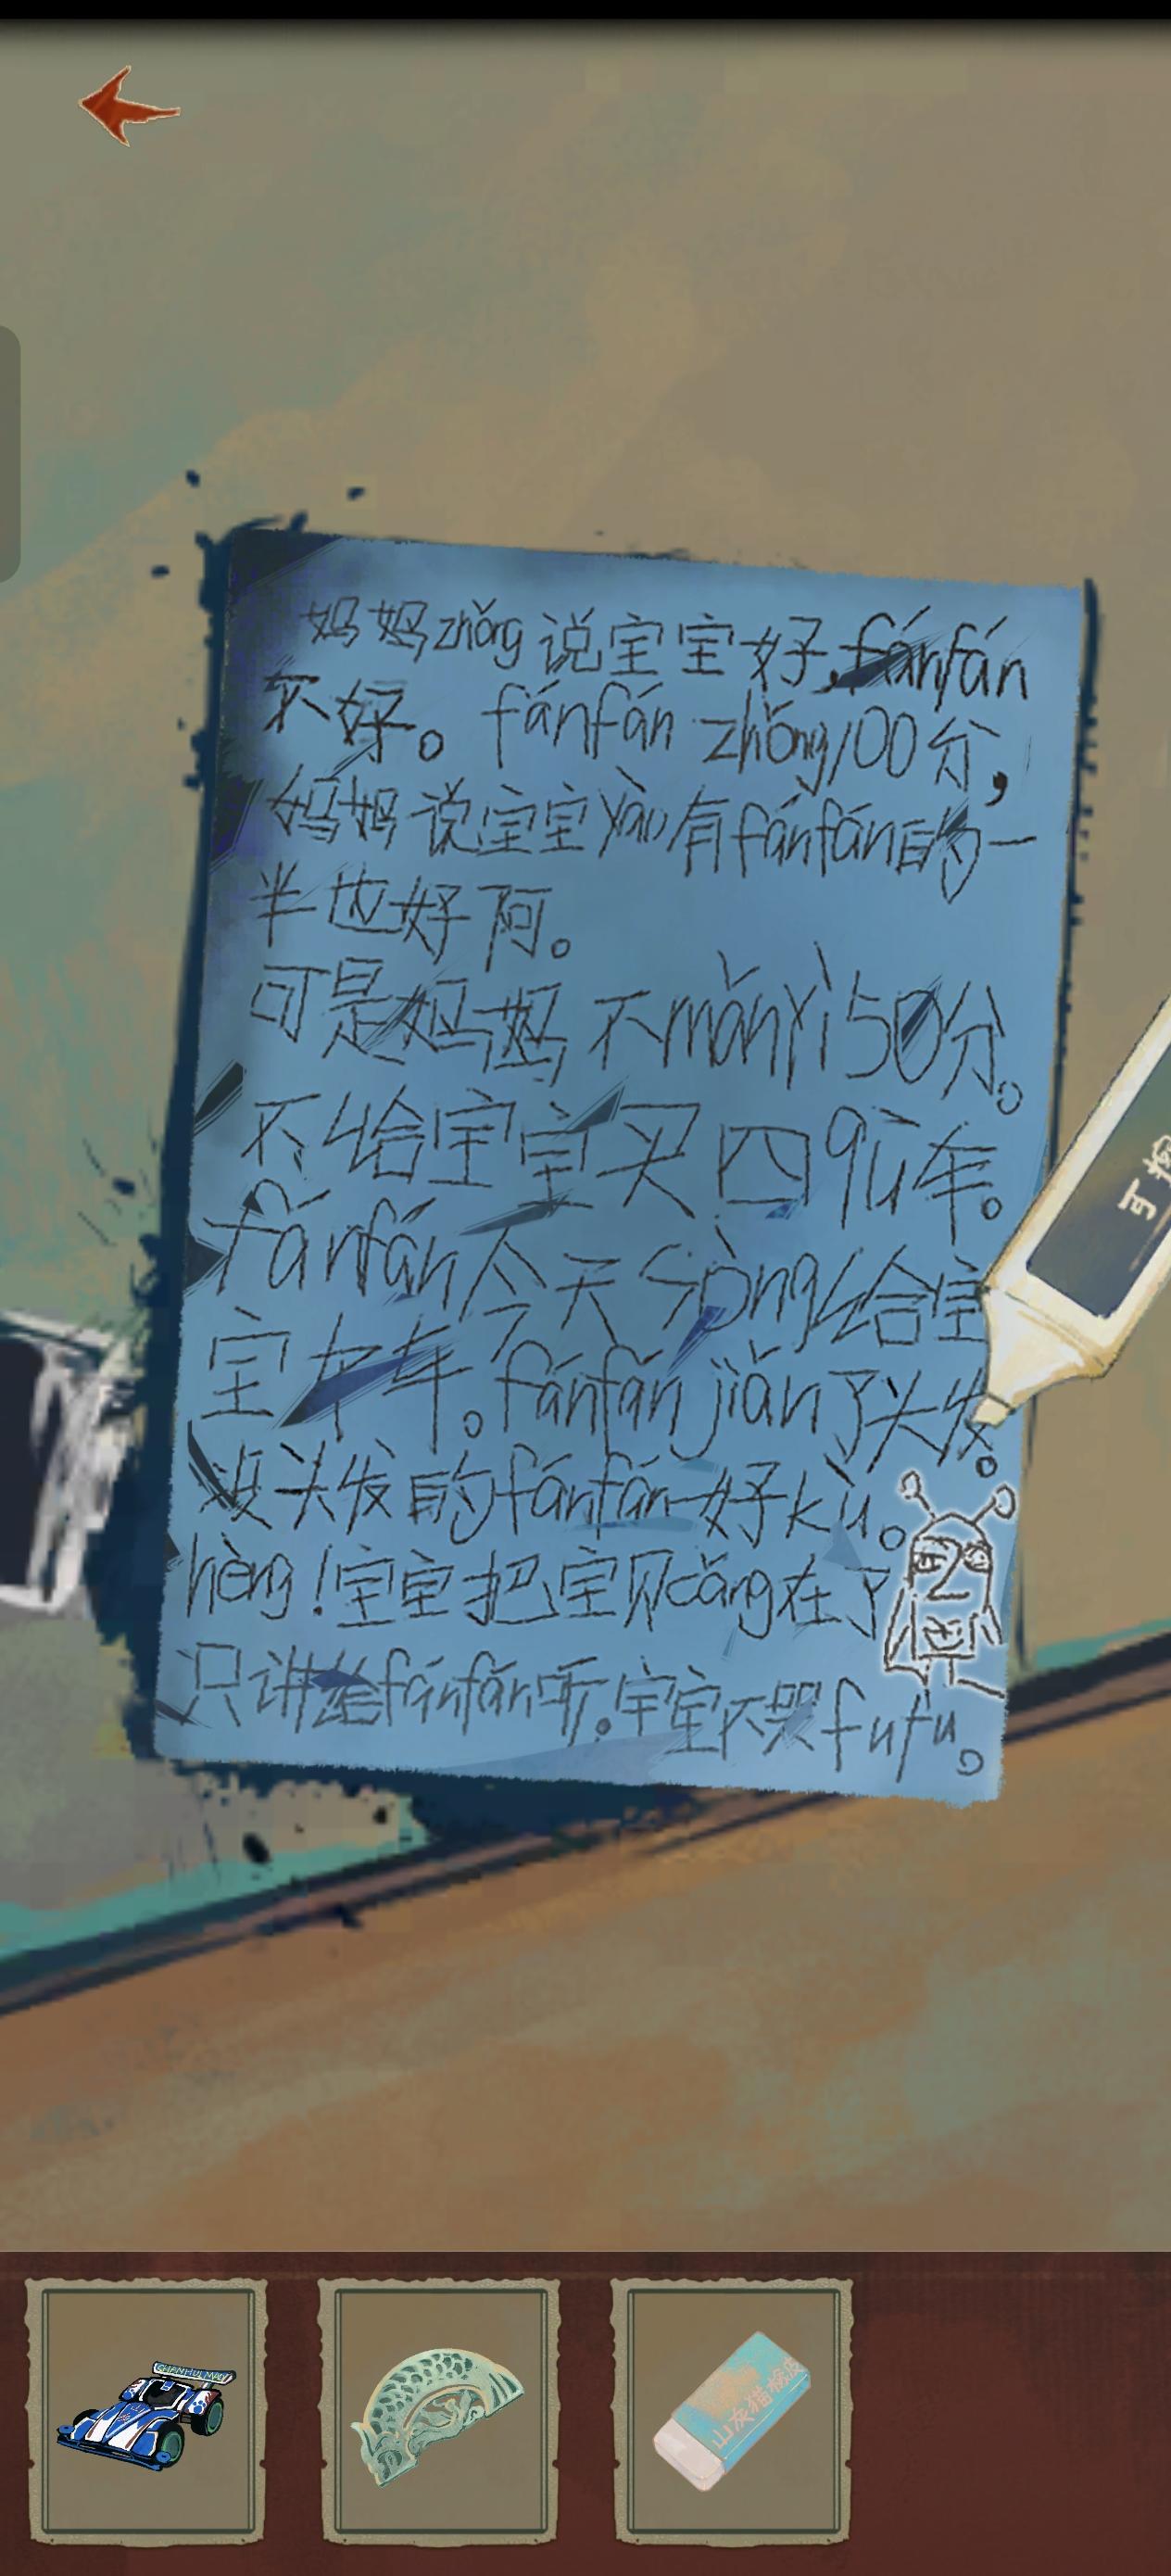 妈妈zhǒng说宝宝好,fánfán
不好。fánfán zhǒng100分,
妈妈说宝宝yào有fánfán的一
半也好阿。
可是妈妈不mǎnyì50分。
不给宝宝买四qū车。
fánfán今天sòng给宝
宝卡车。fánfán jiǎn了头发。
没头发的fánfán好kù。
hèng!宝宝把宝贝cǎng在了
只讲给fánfán听。宝宝不哭fufu。
可擦
CHANHUI MAO
山灰猫橡皮